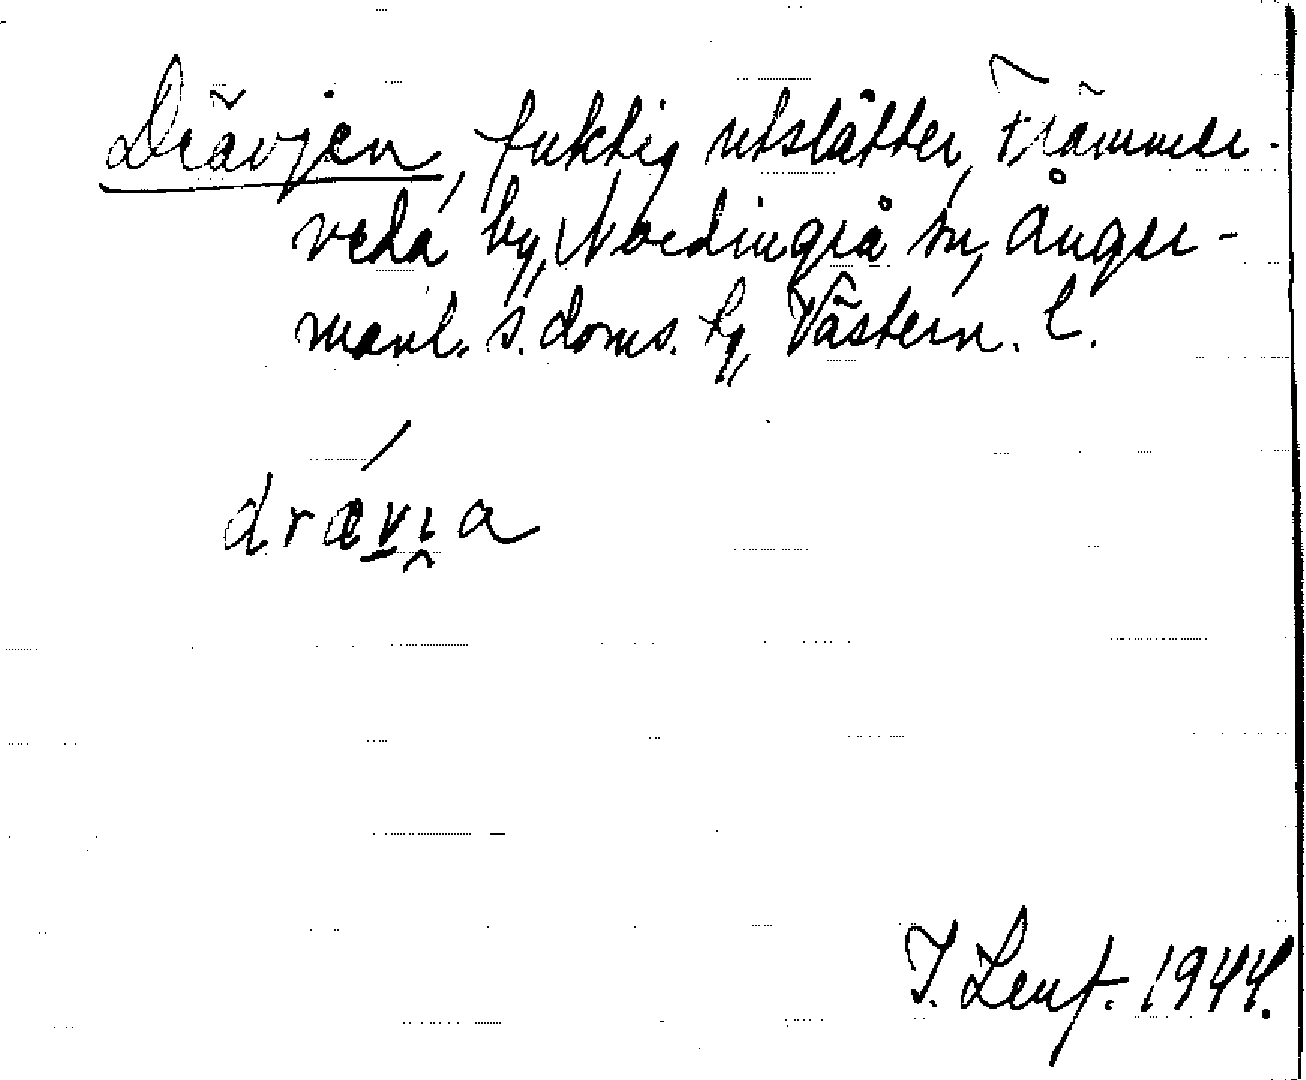 Drävjen, fuktig utslåtter, Främmer-
veda by, Nordingrå sn, Ånger-
manl. s. doms. hg, Västern. l.
drævi̯a
J. Lenf. 1944.